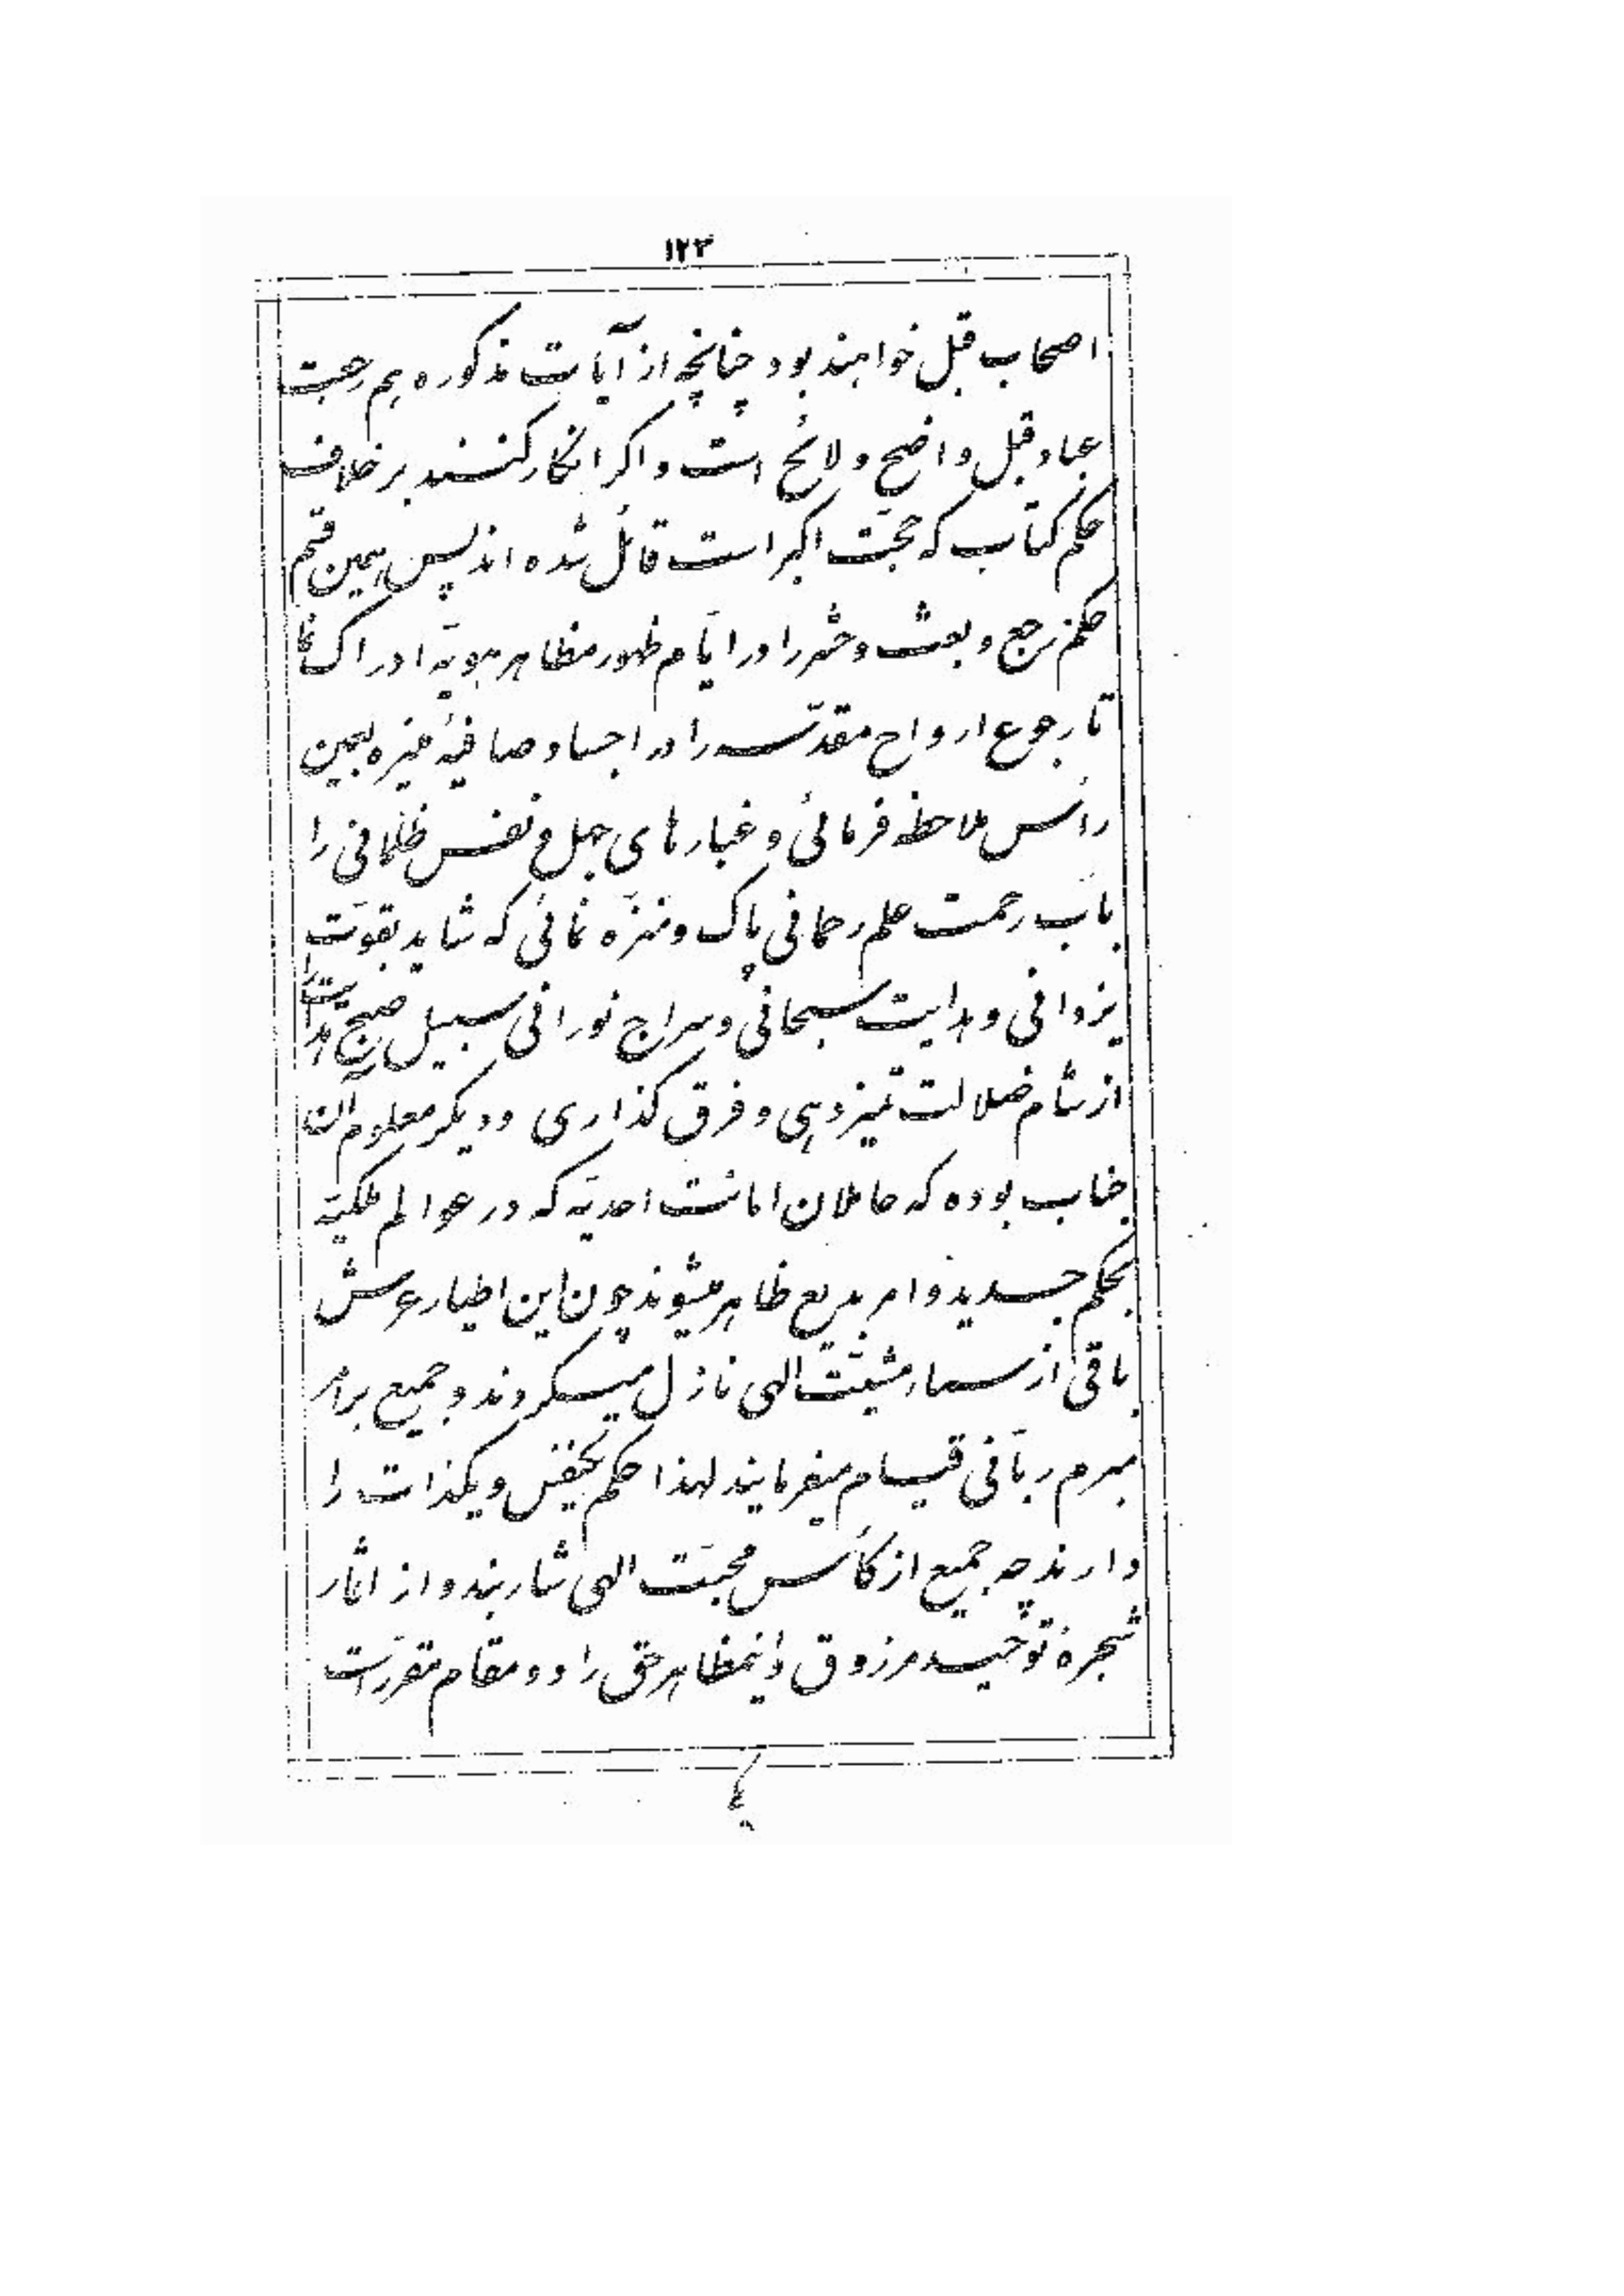 ١٢٣
اصحاب قبل خواهند بود چنانچه از آیات مذکوره هم رجعت
عباد قبل واضح و لائح است و اکر انکار کنند بر خلاف
حکم کتاب که حجّت اکبر است قائل شده اند پس همین قسم
حکم رجع و بعث و حشر را در ایّام ظهور مظاهر هویّه ادراک نما
تا رجوع ارواح مقدّسه را در اجساد صافیهٔ منیره بعین
رأس ملاحظه فرمائی و غبارهای جهل و نفس ظلمانی را
بآب رحمت علم رحمانی پاک و منزّه نمائی که شاید بقوّت
یزدانی و هدایت سبحانی و سراج نورانی سبیل صبح هدایت را
از شام ضلالت تمیز دهی و فرق کذاری و دیکر معلوم آن
جناب بوده که حاملان امانت احدیّه که در عوالم ملکیّه
بحکم جدید و امر بدیع ظاهر میشوند چون این اطیار عرش
باقی از سماء مشیّت الهی نازل میکردند و جمیع بر امر
مبرم ربّانی قیام میفرمایند لهذا حکم یکنفس و یکذات را
دارند چه جمیع از کأس محبّت الهی شاربند و از اثمار
شجرهٔ توحید مرزوق و اینمظاهر حق را دو مقام مقرّر است
یکی